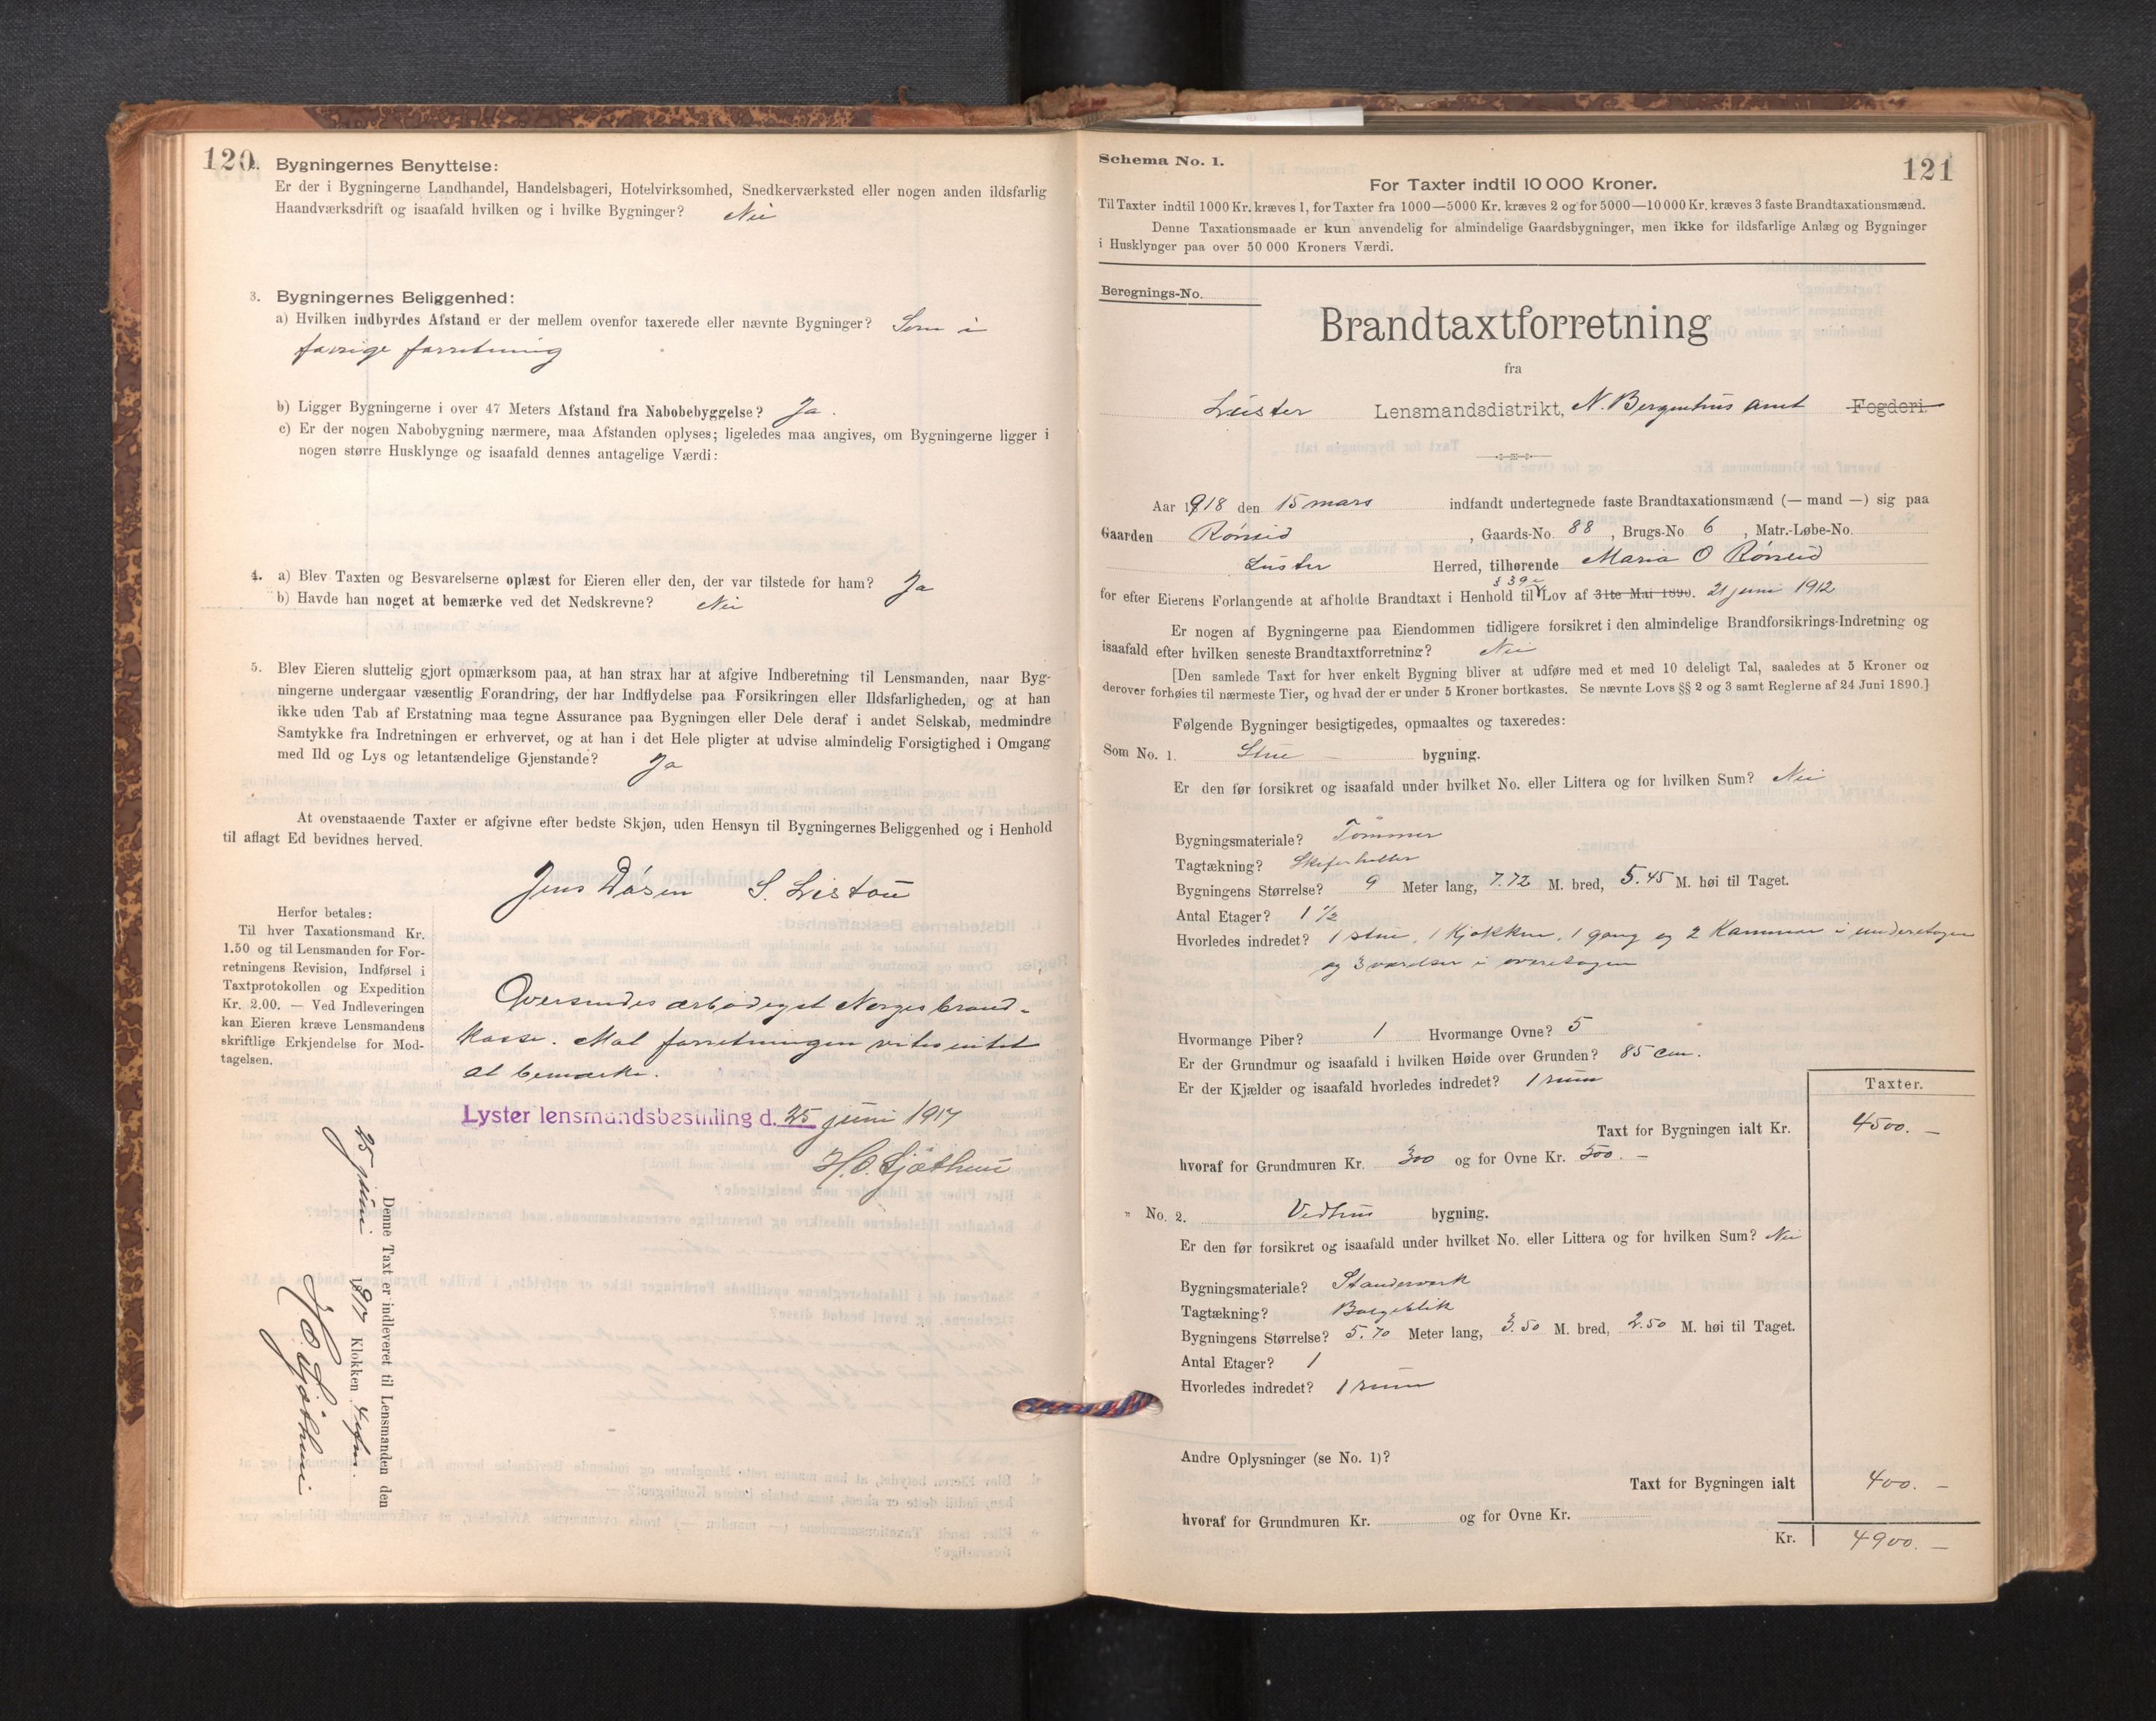 120.
2. Bygningernes Benyttelse:
Er der i Bygningerne Landhandel, Handelsbageri, Hotelvirksomhed, Snedkerværksted eller nogen anden ildsfarlig
Haandværksdrift og isaafald hvilken og i hvilke Bygninger? Nei
3. Bygningernes Beliggenhed:
a) Hvilken indbyrdes Afstand er der mellem ovenfor taxerede eller nævnte Bygninger? Som i
forrige forretning
b) Ligger Bygningerne i over 47 Meters Afstand fra Nabobebyggelse? Ja.
c) Er der nogen Nabobygning nærmere, maa Afstanden oplyses; ligeledes maa angives, om Bygningerne ligger i
nogen større Husklynge og isaafald dennes antagelige Værdi:
4. a) Blev Taxten og Besvarelserne oplæst for Eieren eller den, der var tilstede for ham? Ja
b) Havde han noget at bemærke ved det Nedskrevne? Nei
5. Blev Eieren sluttelig gjort opmærksom paa, at han strax har at afgive Indberetning til Lensmanden, naar Byg-
ningerne undergaar væsentlig Forandring, der har Indflydelse paa Forsikringen eller Ildsfarligheden, og at han
ikke uden Tab af Erstatning maa tegne Assurance paa Bygningen eller Dele deraf i andet Selskab, medmindre
Samtykke fra Indretningen er erhvervet, og at han i det Hele pligter at udvise almindelig Forsigtighed i Omgang
med Ild og Lys og letantændelige Gjenstande? Ja
At ovenstaaende Taxter er afgivne efter bedste Skjøn, uden Hensyn til Bygningernes Beliggenhed og i Henhold
til aflagt Ed bevidnes herved.
Jens Døsen S. Listou
Herfor betales:
Til hver Taxationsmand Kr.
1.50 og til Lensmanden for For-
retningens Revision, Indførsel i
Taxtprotokollen og Expedition
Kr. 2.00. — Ved Indleveringen
kan Eieren kræve Lensmandens
skriftlige Erkjendelse for Mod-
tagelsen.
Oversendes ærbødigst Norges brand-
kasse. Mot forretningen vites intet
at bemærke.
Lyster lensmandsbestilling d. 25 juni 1917
H.O. Sjøthun
Denne Taxt er indleveret til Lensmanden den
25 juni 1917 Klokken 4 efm.
H.O. Sjøthun
121
Schema No. 1.
For Taxter indtil 10 000 Kroner.
Til Taxter indtil 1000 Kr. kræves 1, for Taxter fra 1000—5000 Kr. kræves 2 og for 5000—10 000 Kr. kræves 3 faste Brandtaxationsmænd.
Denne Taxationsmaade er kun anvendelig for almindelige Gaardsbygninger, men ikke for ildsfarlige Anlæg og Bygninger
i Husklynger paa over 50 000 Kroners Værdi.
Beregnings-No.
Brandtaxtforretning
fra
Luster Lensmandsdistrikt, N. Bergenhus amt Fogderi.
Aar 1918 den 15 mars indfandt undertegnede faste Brandtaxationsmænd (— mand —) sig paa
Gaarden Røneid, Gaards-No. 88, Brugs-No 6, Matr.-Løbe-No.
Luster Herred, tilhørende Maria O Røneid
for efter Eierens Forlangende at afholde Brandtaxt i Henhold til § 39 Lov af 31te Mai 1890. 21 juni 1912
Er nogen af Bygningerne paa Eiendommen tidligere forsikret i den almindelige Brandforsikrings-Indretning og
isaafald efter hvilken seneste Brandtaxtforretning? Nei
[Den samlede Taxt for hver enkelt Bygning bliver at udføre med et med 10 deleligt Tal, saaledes at 5 Kroner og
derover forhøies til nærmeste Tier, og hvad der er under 5 Kroner bortkastes. Se nævnte Lovs §§ 2 og 3 samt Reglerne af 24 Juni 1890.]
Følgende Bygninger besigtigedes, opmaaltes og taxeredes:
Som No. 1. Stue bygning.
Er den før forsikret og isaafald under hvilket No. eller Littera og for hvilken Sum? Nei
Bygningsmateriale? Tømmer
Tagtækning? Skiferheller
Bygningens Størrelse? 9 Meter lang, 7.72 M. bred, 5.45 M. høi til Taget.
Antal Etager? 1 1/2
Hvorledes indredet? 1 stue, 1 kjøkken, 1 gang og 2 kammer i underetagen
og 3 værelser i overetagen
Hvormange Piber? 1 Hvormange Ovne? 5
Er der Grundmur og isaafald i hvilken Høide over Grunden? 85 cm.
Er der Kjælder og isaafald hvorledes indredet? 1 rum
Taxter.
Taxt for Bygningen ialt Kr. 4500. —
hvoraf for Grundmuren Kr. 300 og for Ovne Kr. 500. —
" No. 2. Vedhus bygning.
Er den før forsikret og isaafald under hvilket No. eller Littera og for hvilken Sum? Nei
Bygningsmateriale? Standerverk
Tagtækning? Bølgeblik
Bygningens Størrelse? 5.70 Meter lang, 3.50 M. bred, 2.50 M. høi til Taget.
Antal Etager? 1
Hvorledes indredet? 1 rum
Andre Oplysninger (se No. 1)?
Taxt for Bygningen ialt 400. —
hvoraf for Grundmuren Kr. og for Ovne Kr.
Kr. 4900. —